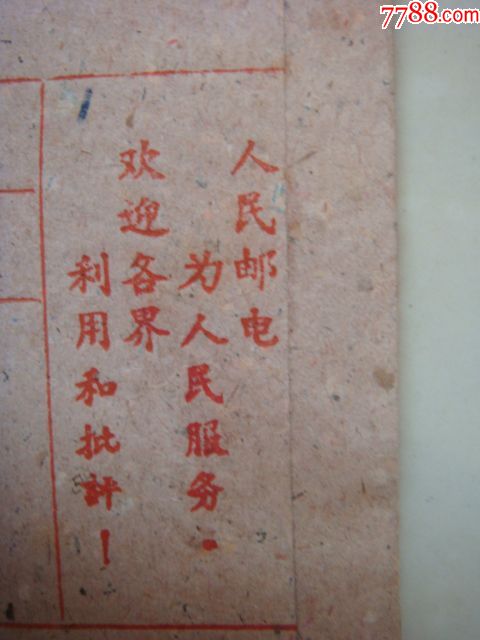 7788.com
人民邮电
为人民服务.
欢迎各界
利用和批評！